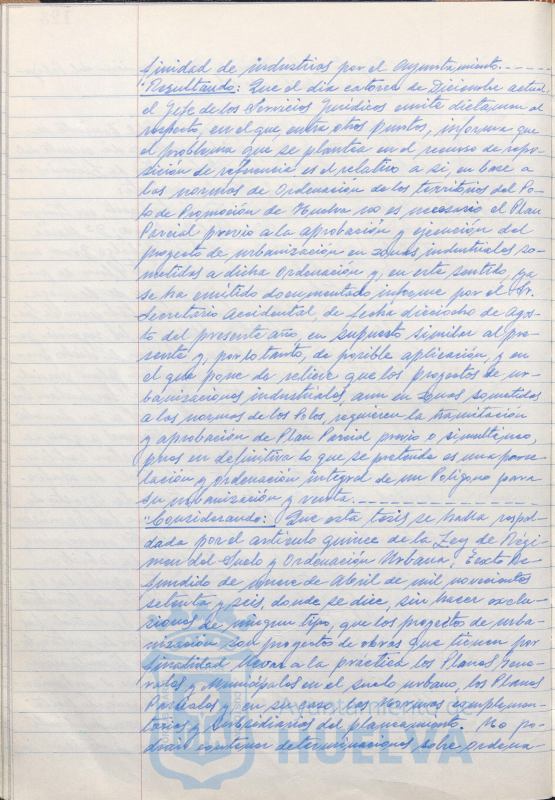 finidad de industrias por el Ayuntamiento.
"Resultando: Que el dia catorce de Diciembre actual,
el Jefe de los Servicios Jurídicos emite dictamen al
respecto, en el que entre otros puntos, informa que
el problema que se plantea en el recurso de repo-
sición de referencia es el relativo a si, en base a
las normas de Ordenación de los territorios del Po-
lo de Promoción de Huelva no es necesario el Plan
Parcial previo a la aprobación y ejecución del
proyecto de urbanización en zonas industriales so-
metidas a dicha Ordenación y, en este sentido, ya
se ha emitido documentado informe por el Sr.
Secretario Accidental, de fecha dieciocho de Agos-
to del presente año, en supuesto similar al pre-
sente y, por lo tanto, de posible aplicación, y en
el que pone de relieve que los proyectos de ur-
banizaciones industriales, aun en zonas sometidas
a las normas de los Polos, requieren la tramitación
y aprobación de Plan Parcial previo o simultáneo,
pues en definitiva lo que se pretende es una parce-
lación y ordenación integral de un Polígono para
su urbanización y venta.
"Considerando: Que esta tesis se halla respal-
dada por el artículo quince de la Ley de Régi-
men del Suelo y Ordenación Urbana, Texto Re-
fundido de nueve de Abril de mil novecientos
setenta y seis, donde se dice, sin hacer exclu-
siones de ningun tipo, que los proyectos de urba-
nización son proyectos de obras que tienen por
finalidad llevar a la práctica los Planes Gene-
rales y Municipales en el suelo urbano, los Planes
Parciales y en su caso, las Normas complemen-
tarias y subsidiarias del planeamiento. No po-
drán contener determinaciones sobre ordena-
HUELVA